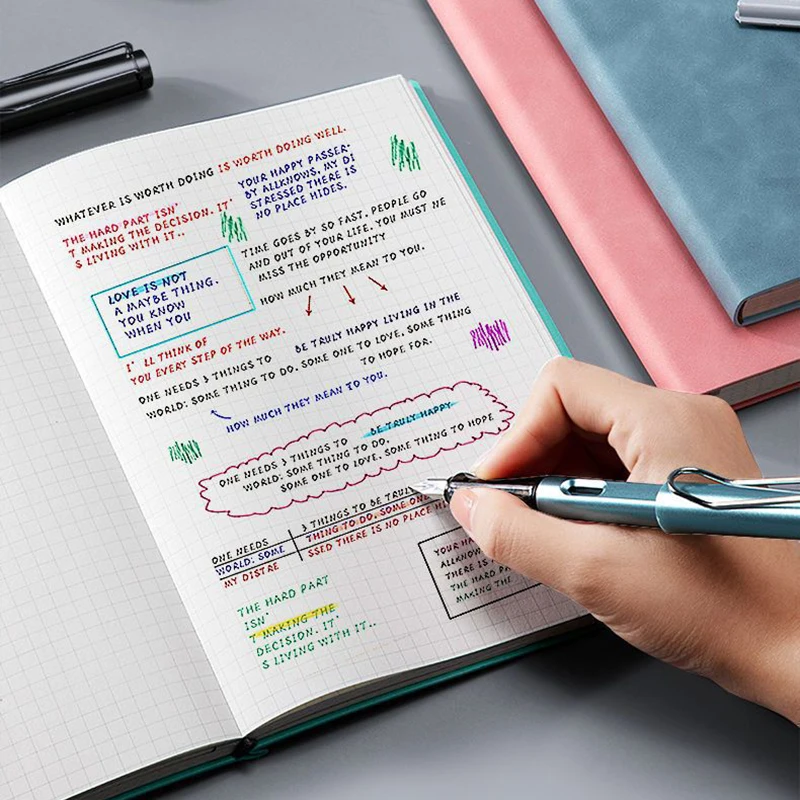 WHATEVER IS WORTH DOING IS WORTH DOING WELL.
THE HARD PART ISN'
T MAKING THE DECISION. IT'
S LIVING WITH IT..
YOUR HAPPY PASSER-
BY ALLKNOWS, MY DI
STRESSED THERE IS
NO PLACE HIDES.
TIME GOES BY SO FAST, PEOPLE GO
AND OUT OF YOUR LIFE. YOU MUST NE
MISS THE OPPORTUNITY
HOW MUCH THEY MEAN TO YOU.
LOVE IS NOT
A MAYBE THING.
YOU KNOW
WHEN YOU
I' LL THINK OF
YOU EVERY STEP OF THE WAY.
ONE NEEDS 3 THINGS TO BE TRULY HAPPY LIVING IN THE
WORLD: SOME THING TO DO. SOME ONE TO LOVE. SOME THING
TO HOPE FOR.
HOW MUCH THEY MEAN TO YOU.
ONE NEEDS 3 THINGS TO BE TRULY HAPPY
WORLD: SOME THING TO DO.
SOME ONE TO LOVE. SOME THING TO HOPE
ONE NEEDS 3 THINGS TO BE TRULY
WORLD: SOME THING TO DO. SOME ONE
MY DISTRE SSED THERE IS NO PLACE HI
YOUR HA
ALLKNOW
THERE IS
THE HARD PA
MAKING THE
THE HARD PART
ISN'
T MAKING THE
DECISION. IT'
S LIVING WITH IT..